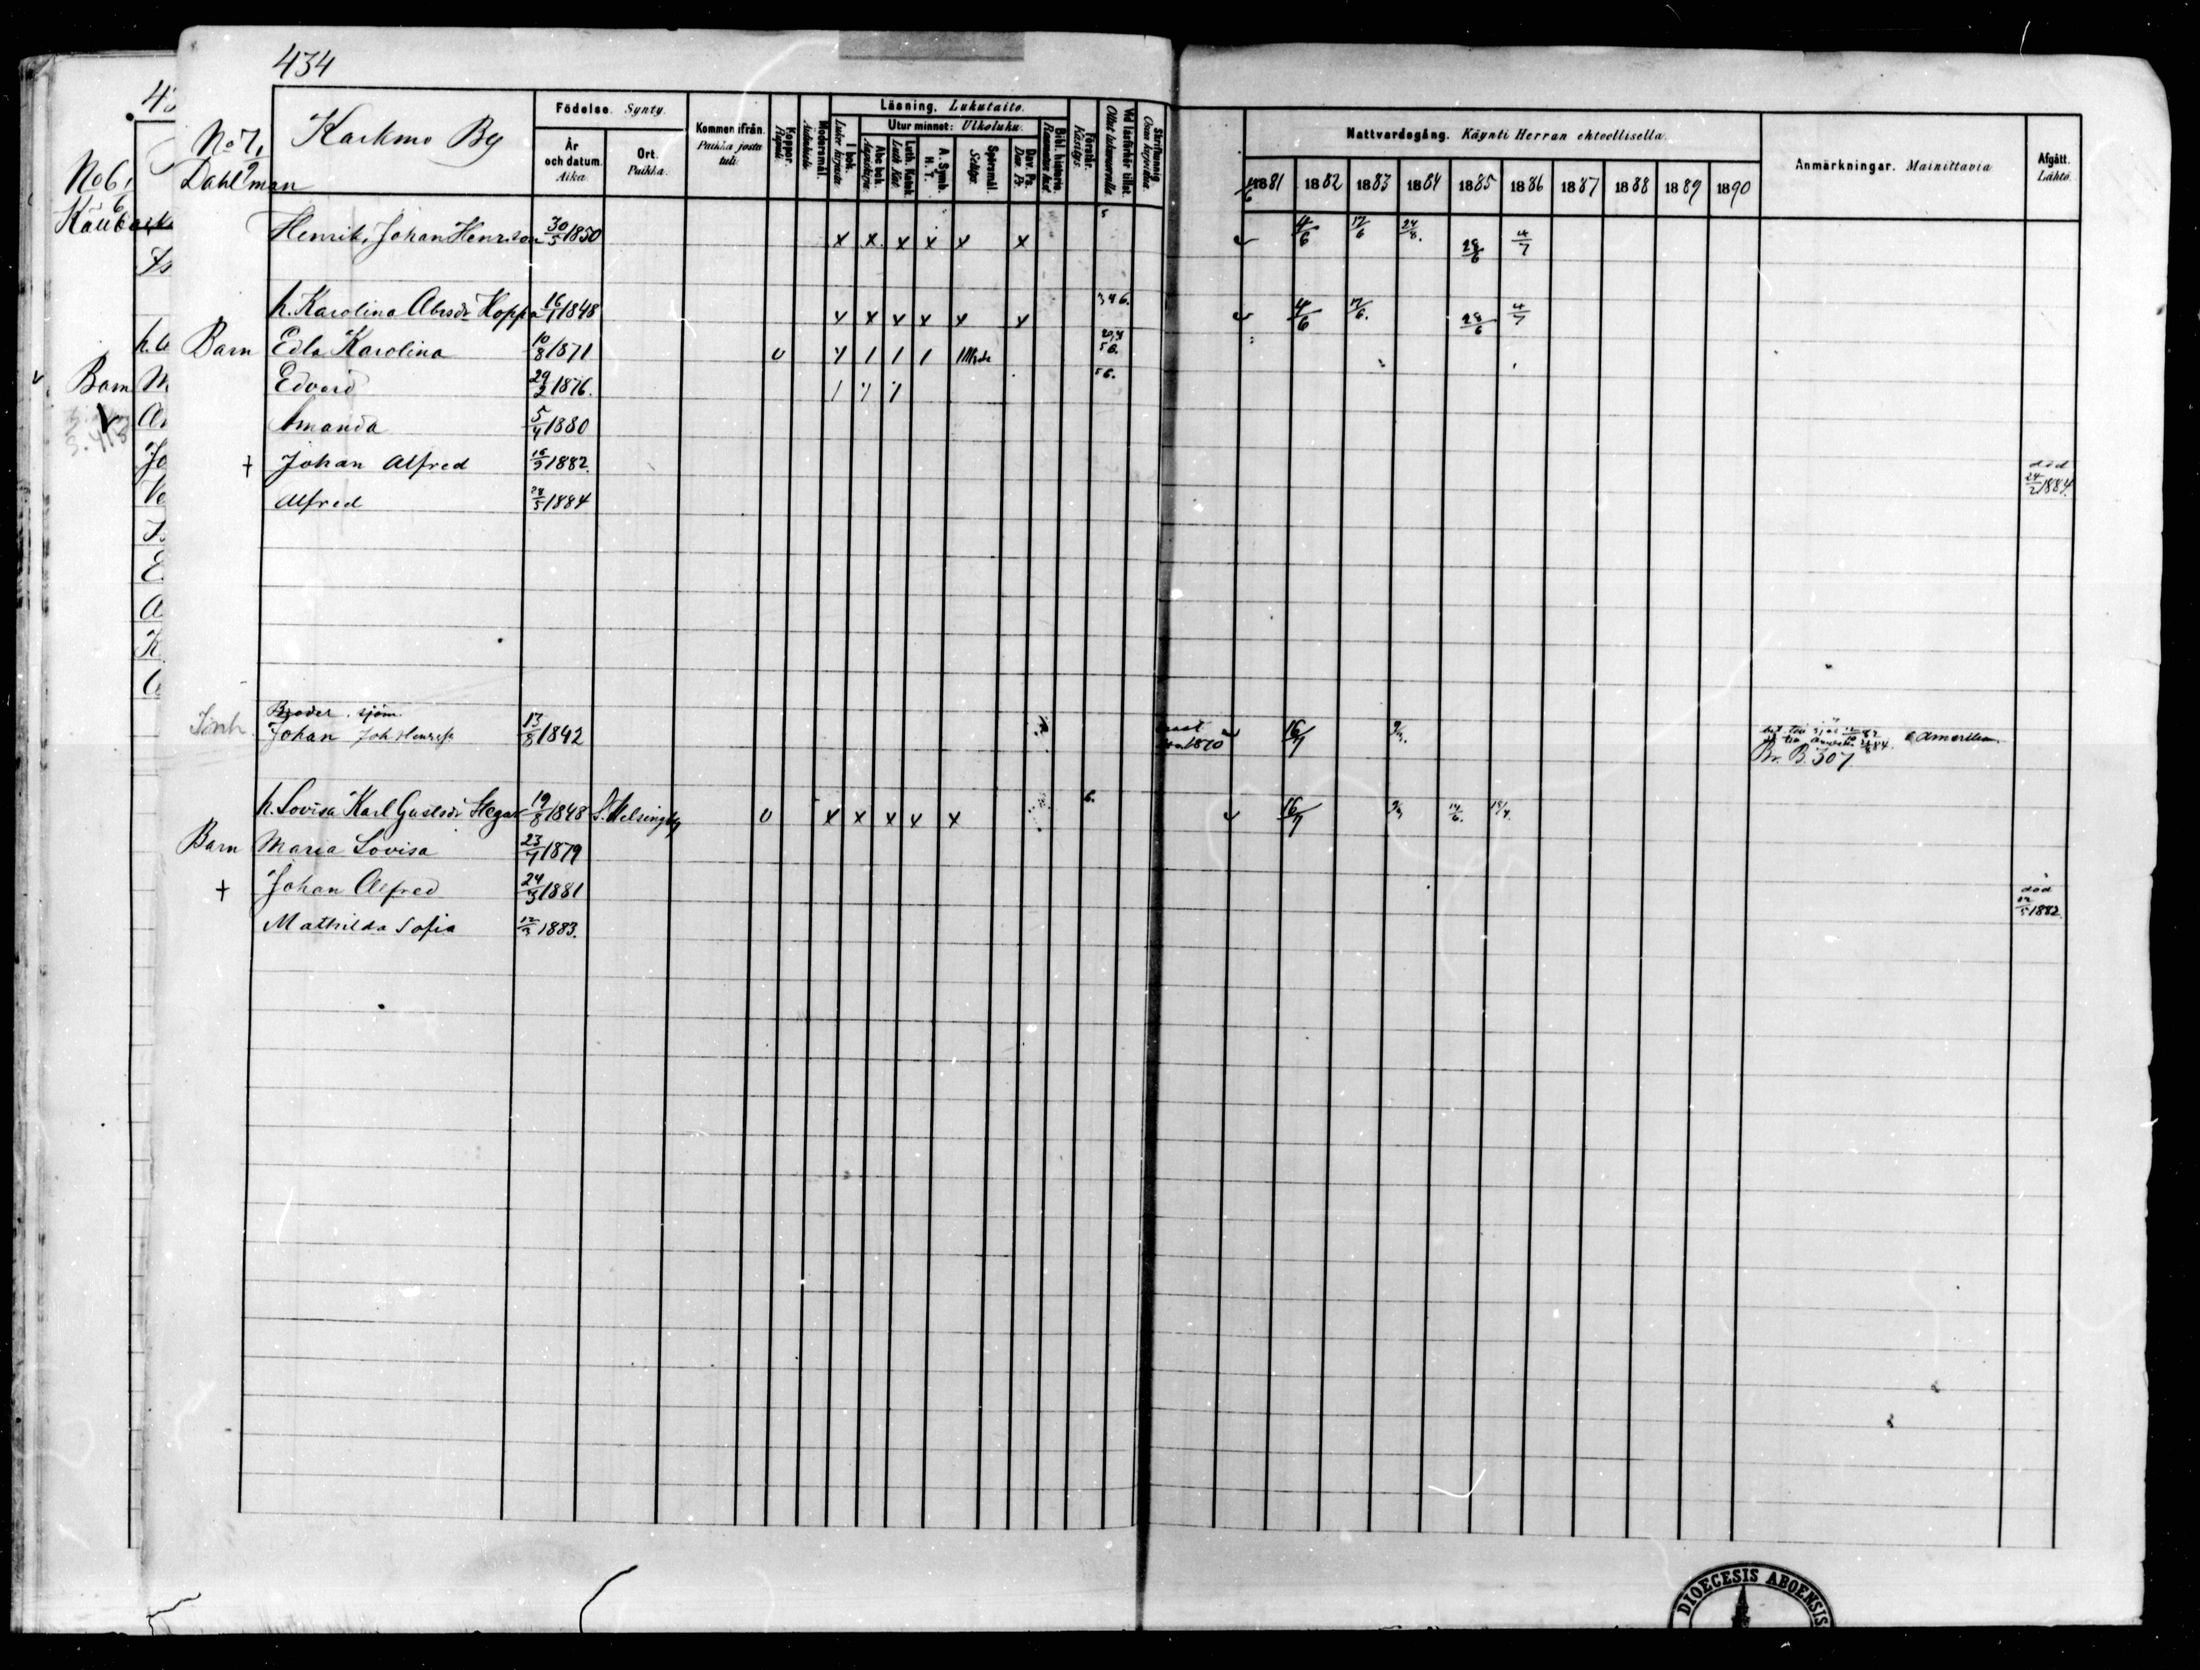 434
Karkmo By
No 7,
Dahlman
No 6,
Födelse. Synty.
År och datum. Aika.
Ort. Paikka.
Kommen ifrån. Paikka josta tuli.
Koppor. Rupuli.
Modersmål. Äidinkieli.
Läsning. Lukutaito.
I bok. Luku kirjasta
Utur minnet: Ulkoluku.
Abc bok. Aapiskirja.
Luth. Katek. Luth. Kat.
A. Symb. H. T.
Spörsmål. Selitys.
Dav. Ps. Dav. Ps.
Bibl. historia
Förstår. Käsitys.
Vid läsförhör tillst. Ollut lukuvuorolla
Skriftkunnig. Osaa kirjoittaa.
Nattvardsgång. Käynti Herran ehtoollisella.
1881 1882 1883 1884 1885 1886 1887 1888 1889 1890
Anmärkningar. Mainittavia
Afgått. Lähtö.
Henrik, Johan Henrson 30/5 1850 x x x x x x 4/6 17/6 24/8. 28/6 4/7
h. Karolina Abrsdr Hoppa 16/1 1848 x x x x x x 346. 4/6 17/6. 28/6 4/7
Barn Edla Karolina 10/8 1871 56.
Edvard 29/2 1876. 56.
Amanda 5/4 1880
† Johan Alfred 16/9 1882. död 24/2 1884.
Alfred 28/5 1884
Broder. sjöm.
Johan Joh Henrsn 13/8 1842 1870 16/7 9/3. Amerika.
Br. B. 307.
h. Lovisa Karl Gustsdr Hegar 19/8 1848 S. Helsingby x x x x x 6. 16/7 9/3 14/6. 18/4.
Barn Maria Lovisa 23/7 1879
† Johan Alfred 24/3 1881 död 12/5 1882.
Mathilda Sofia 12/3 1883.
Barn
DIOECESIS ABOENSIS